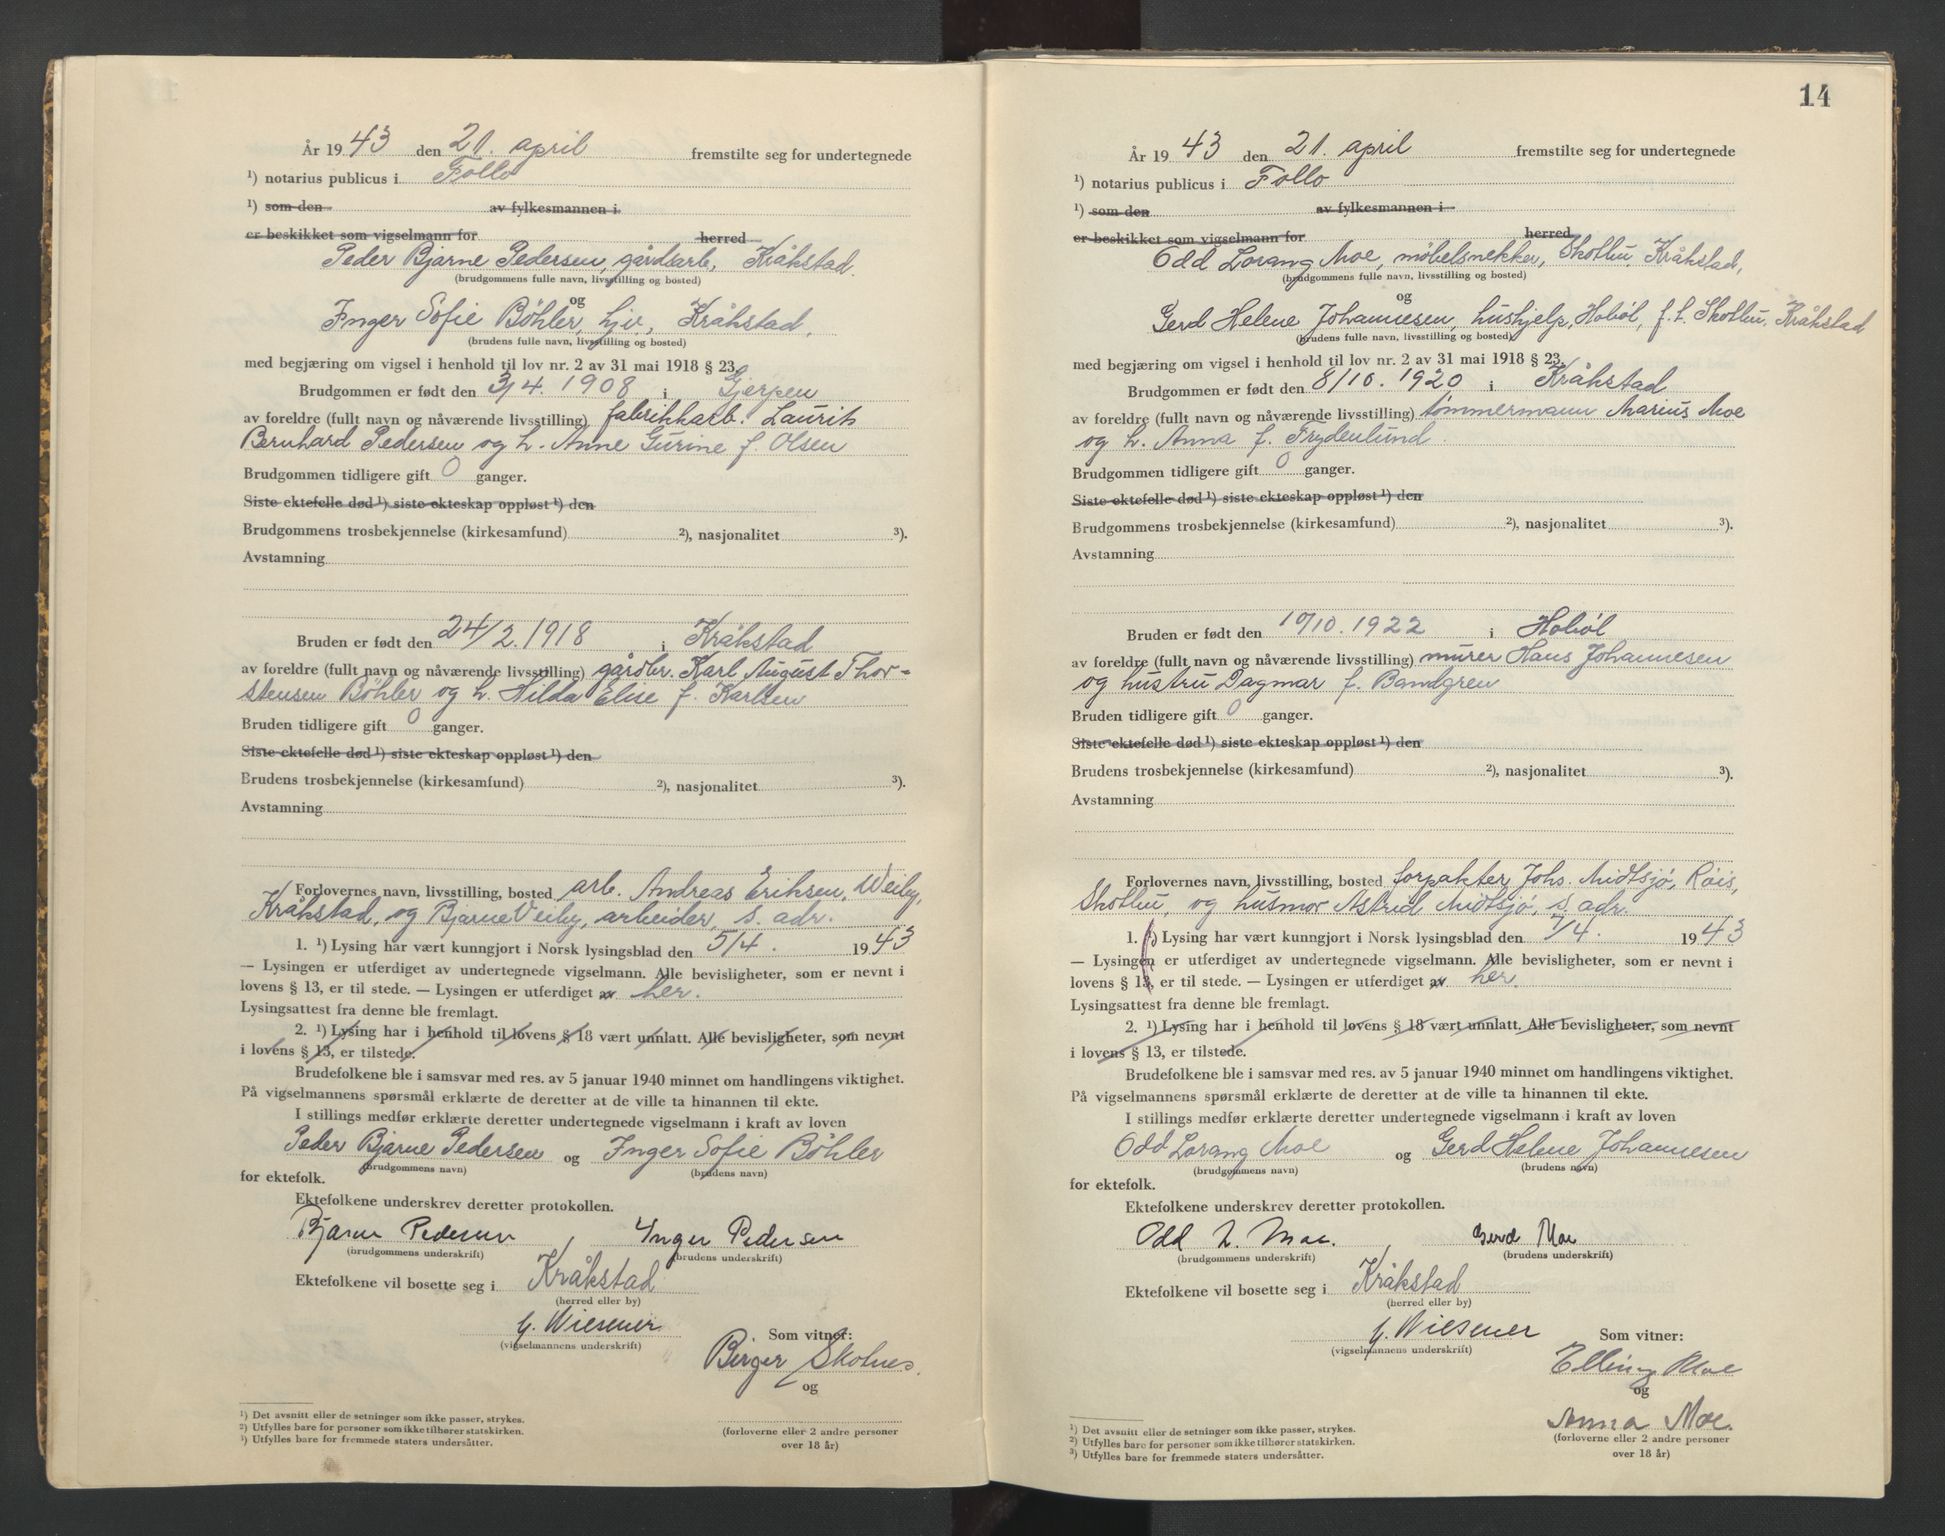 År 1943 den 21. april fremstilte seg for undertegnede
¹) notarius publicus i Follo
¹) som den av fylkesmannen i
er beskikket som vigselmann for herred
Peder Bjarne Pedersen, gårdsarb, Kråkstad.
(brudgommens fulle navn, livsstilling og bosted)
og
Inger Sofie Bøhler, hjv., Kråkstad,
(brudens fulle navn, livsstilling og bosted)
med begjæring om vigsel i henhold til lov nr. 2 av 31 mai 1918 § 23.
Brudgommen er født den 3/4. 1908 i Gjerpen
av foreldre (fullt navn og nåværende livsstilling) fabrikkarb. Laurits
Bernhard Pedersen og h. Anne Gurine f. Olsen
Brudgommen tidligere gift 0 ganger.
Siste ektefelle død ¹) siste ekteskap oppløst ¹) den
Brudgommens trosbekjennelse (kirkesamfund) ²), nasjonalitet ³).
Avstamning
Bruden er født den 24/2. 1918 i Kråkstad
av foreldre (fullt navn og nåværende livsstilling) gårdbr. Karl August Thor-
stensen Bøhler og h. Hilda Elise f. Karlsen
Bruden tidligere gift 0 ganger.
Siste ektefelle død ¹) siste ekteskap oppløst ¹) den
Brudens trosbekjennelse (kirkesamfund) ²), nasjonalitet ³).
Avstamning
Forlovernes navn, livsstilling, bosted arb. Andreas Eriksen, Weiby,
Kråkstad, og Bjarne Veiby, arbeider, s. adr.
1. ¹) Lysing har vært kunngjort i Norsk lysingsblad den 5/4. 1943
— Lysingen er utferdiget av undertegnede vigselmann. Alle bevisligheter, som er nevnt i
lovens § 13, er til stede. — Lysingen er utferdiget av her.
Lysingsattest fra denne ble fremlagt.
2. ¹) Lysing har i henhold til lovens § 18 vært unnlatt. Alle bevisligheter, som nevnt
i lovens § 13, er tilstede.
Brudefolkene ble i samsvar med res. av 5 januar 1940 minnet om handlingens viktighet.
På vigselmannens spørsmål erklærte de deretter at de ville ta hinannen til ekte.
I stillings medfør erklærte deretter undertegnede vigselmann i kraft av loven
Peder Bjarne Pedersen og Inger Sofie Bøhler
(brudgommens navn) (brudens navn)
for ektefolk.
Ektefolkene underskrev deretter protokollen.
Bjarne Pedersen, Inger Pedersen
(brudgommens underskrift) (brudens underskrift)
Ektefolkene vil bosette seg i Kråkstad
(herred eller by)
G. Wiesener
(vigselmannens underskrift)
Som vitner:
Birger Skotnes.
og
(forloverne eller 2 andre personer
over 18 år)
¹) Det avsnitt eller de setninger som ikke passer, strykes.
²) Utfylles bare for personer som ikke tilhører statskirken.
³) Utfylles bare for fremmede staters undersåtter.
14
År 1943 den 21. april fremstilte seg for undertegnede
¹) notarius publicus i Follo
¹) som den av fylkesmannen i
er beskikket som vigselmann for herred
Odd Lorang Moe, møbelsnekker, Skotbu, Kråkstad,
(brudgommens fulle navn, livsstilling og bosted)
og
Gerd Helene Johannesen, hushjelp, Hobøl, f.t. Skotbu, Kråkstad
(brudens fulle navn, livsstilling og bosted)
med begjæring om vigsel i henhold til lov nr. 2 av 31 mai 1918 § 23.
Brudgommen er født den 8/10. 1920 i Kråkstad
av foreldre (fullt navn og nåværende livsstilling) tømmermann Marius Moe
og h. Anna f. Frydenlund.
Brudgommen tidligere gift 0 ganger.
Siste ektefelle død ¹) siste ekteskap oppløst ¹) den
Brudgommens trosbekjennelse (kirkesamfund) ²), nasjonalitet ³).
Avstamning
Bruden er født den 10/10. 1922 i Hobøl
av foreldre (fullt navn og nåværende livsstilling) murer Hans Johannesen
og hustru Dagmar f. Bandgren
Bruden tidligere gift 0 ganger.
Siste ektefelle død ¹) siste ekteskap oppløst ¹) den
Brudens trosbekjennelse (kirkesamfund) ²), nasjonalitet ³).
Avstamning
Forlovernes navn, livsstilling, bosted forpakter Johs. Midtsjø, Røis,
Skotbu, og husmor Astrid Midtsjø, s. adr.
1. ¹) Lysing har vært kunngjort i Norsk lysingsblad den 7/4. 1943
— Lysingen er utferdiget av undertegnede vigselmann. Alle bevisligheter, som er nevnt i
lovens § 13, er til stede. — Lysingen er utferdiget av her.
Lysingsattest fra denne ble fremlagt.
2. ¹) Lysing har i henhold til lovens § 18 vært unnlatt. Alle bevisligheter, som nevnt
i lovens § 13, er tilstede.
Brudefolkene ble i samsvar med res. av 5 januar 1940 minnet om handlingens viktighet.
På vigselmannens spørsmål erklærte de deretter at de ville ta hinannen til ekte.
I stillings medfør erklærte deretter undertegnede vigselmann i kraft av loven
Odd Lorang Moe og Gerd Helene Johannesen
(brudgommens navn) (brudens navn)
for ektefolk.
Ektefolkene underskrev deretter protokollen.
Odd L. Moe. , Gerd Moe
(brudgommens underskrift) (brudens underskrift)
Ektefolkene vil bosette seg i Kråkstad
(herred eller by)
G. Wiesener
(vigselmannens underskrift)
Som vitner:
Elling Moe
og
Anna Moe.
(forloverne eller 2 andre personer
over 18 år)
¹) Det avsnitt eller de setninger som ikke passer, strykes.
²) Utfylles bare for personer som ikke tilhører statskirken.
³) Utfylles bare for fremmede staters undersåtter.